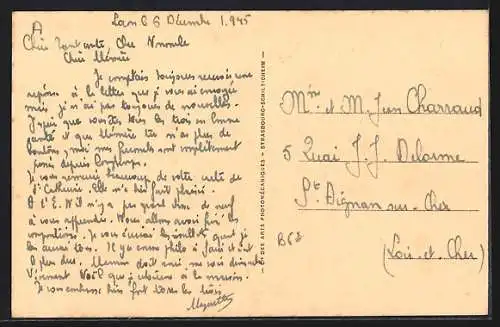 A
Lyon le 6 Décembre 1945
Chère Tante, Cher
Chère Mémée
Je comptais toujours recevoir une
réponse à la lettre que je vous ai envoyée
mais je n'ai pas toujours de nouvelles.
J'espère que vous êtes tous les trois en bonne
santé et que Mémée n'a plus de
boutons, moi mes sont complètement
depuis longtemps.
Je vous remercie beaucoup de votre carte de
Ste Catherine. Elle m'a fait plaisir.
A l'E. N. il n'y a pas grand chose de neuf
à vous apprendre. Nous allons avoir fini les
compositions. Je vous enverrai les résultats quand je
les aurai tous. Il y a encore philo à faire et c'est
à peu près. Maman doit venir me voir dimanche
Vivement Noël que je la maison.
Je vous embrasse bien fort tous les trois
Ste DES ARTS PHOTOMÉCANIQUES - STRASBOURG-SCHILTIGHEIM
Mme et M. Jean Charraud
5 Quai J. J. Delorme
St Aignan sur Cher
B62
(Loir-et-Cher)